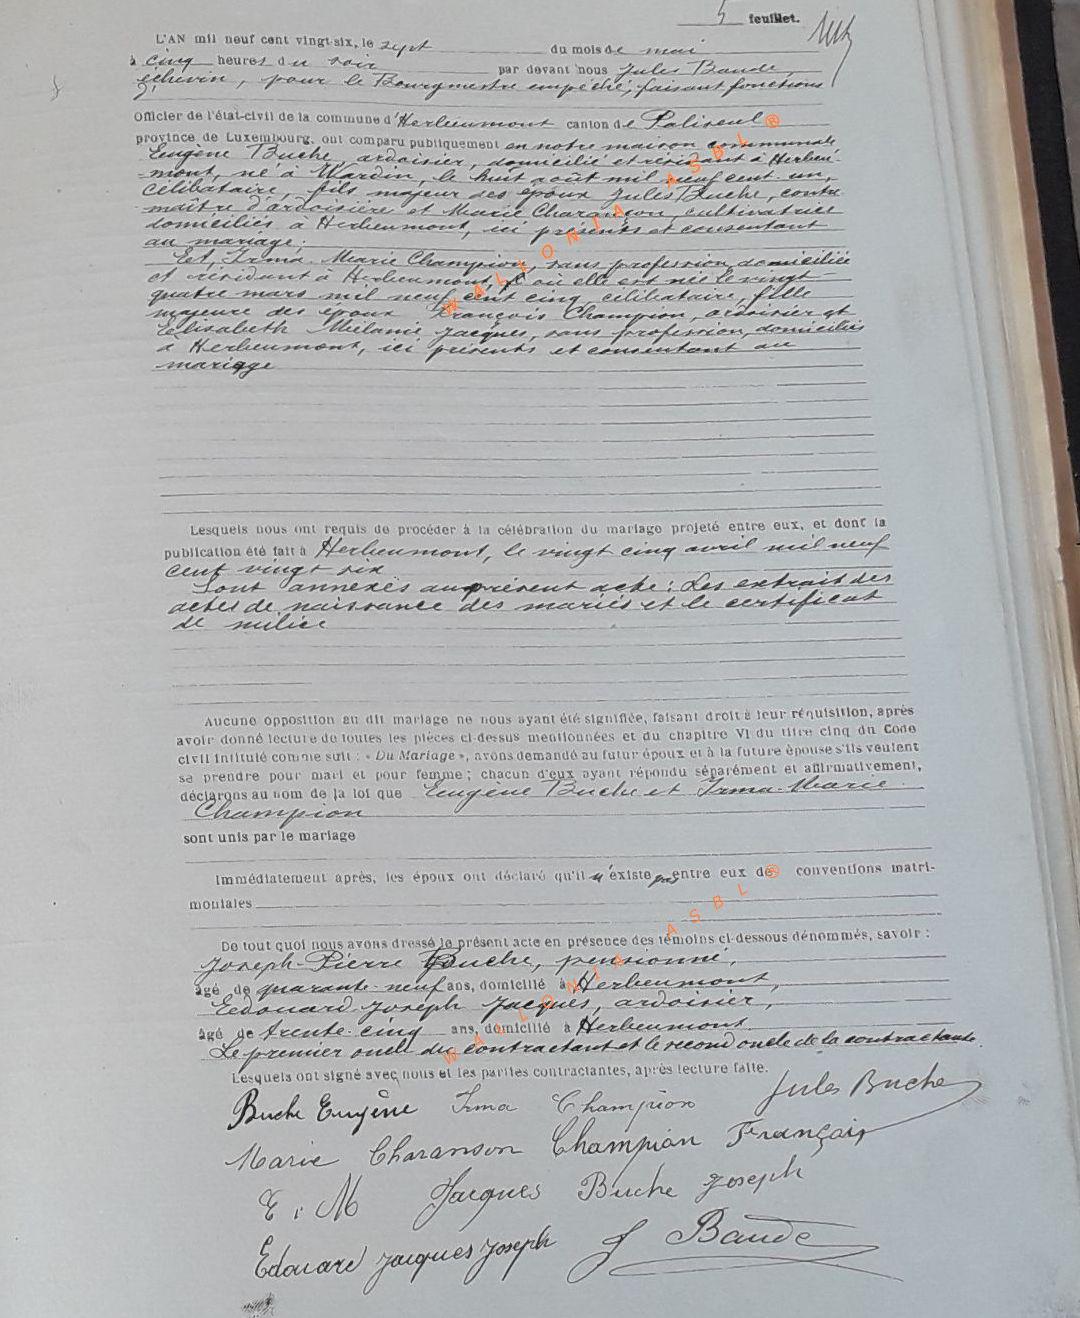 5 feuillet.
L'AN mil neuf cent vingt-six, le sept du mois de mai
à cinq heures du soir par devant nous Jules Baude,
échevin, pour le Bourgmestre empêché, faisant fonctions
Officier de l'état-civil de la commune d'Herbeumont canton de Paliseul
province de Luxembourg, ont comparu publiquement en notre maison communale
Eugène Buche, ardoisier, domicilié et résidant à Herbeu-
mont, né à Wardin, le huit août mil neuf cent un,
célibataire, fils majeur des époux Jules Buche, contre
maître d'ardoisière et Marie Charançon, cultivatrice
domiciliés à Herbeumont, ici présents et consentant
au mariage;
Et, Irma-Marie Champion, sans profession, domiciliée
et résidant à Herbeumont, où elle est née le vingt
quatre mars mil neuf cent cinq, célibataire, fille
majeure des époux François Champion, ardoisier et
Elisabeth Mélanie Jacques, sans profession, domiciliés
à Herbeumont, ici présents et consentant au
mariage
Lesquels nous ont requis de procéder à la célébration du mariage projeté entre eux, et dont la
publication été fait à Herbeumont, le vingt cinq avril mil neuf
cent vingt six
Sont annexés au présent acte: Les extrait des
actes de naissance des mariés et le certificat
de milice
Aucune opposition au dit mariage ne nous ayant été signifiée, faisant droit à leur réquisition, après
avoir donné lecture de toutes les pièces ci-dessus mentionnées et du chapitre VI du titre cinq du Code
civil intitulé comme suit : « Du Mariage », avons demandé au futur époux et à la future épouse s'ils veulent
se prendre pour mari et pour femme ; chacun d'eux ayant répondu séparément et affirmativement,
déclarons au nom de la loi que Eugène Buche et Irma-Marie
Champion
sont unis par le mariage
Immédiatement après, les époux ont déclaré qu'il n'existe pas entre eux de conventions matri-
moniales
De tout quoi nous avons dressé le présent acte en présence des témoins ci-dessous dénommés, savoir :
Joseph-Pierre Buche, pensionné,
âgé de quarante-neuf ans, domicilié à Herbeumont,
Edouard Joseph Jacques, ardoisier,
âgé de trente-cinq ans, domicilié à Herbeumont
Le premier oncle du contractant et le second oncle de la contractante.
Lesquels ont signé avec nous et les parties contractantes, après lecture faite.
Buche Eugène Irma Champion Jules Buche
Marie Charanson Champion François
E. M Jacques Buche Joseph
Edouard Jacques Joseph J Baude
WALLONIA ASBL ®
WALLONIA ASBL ®